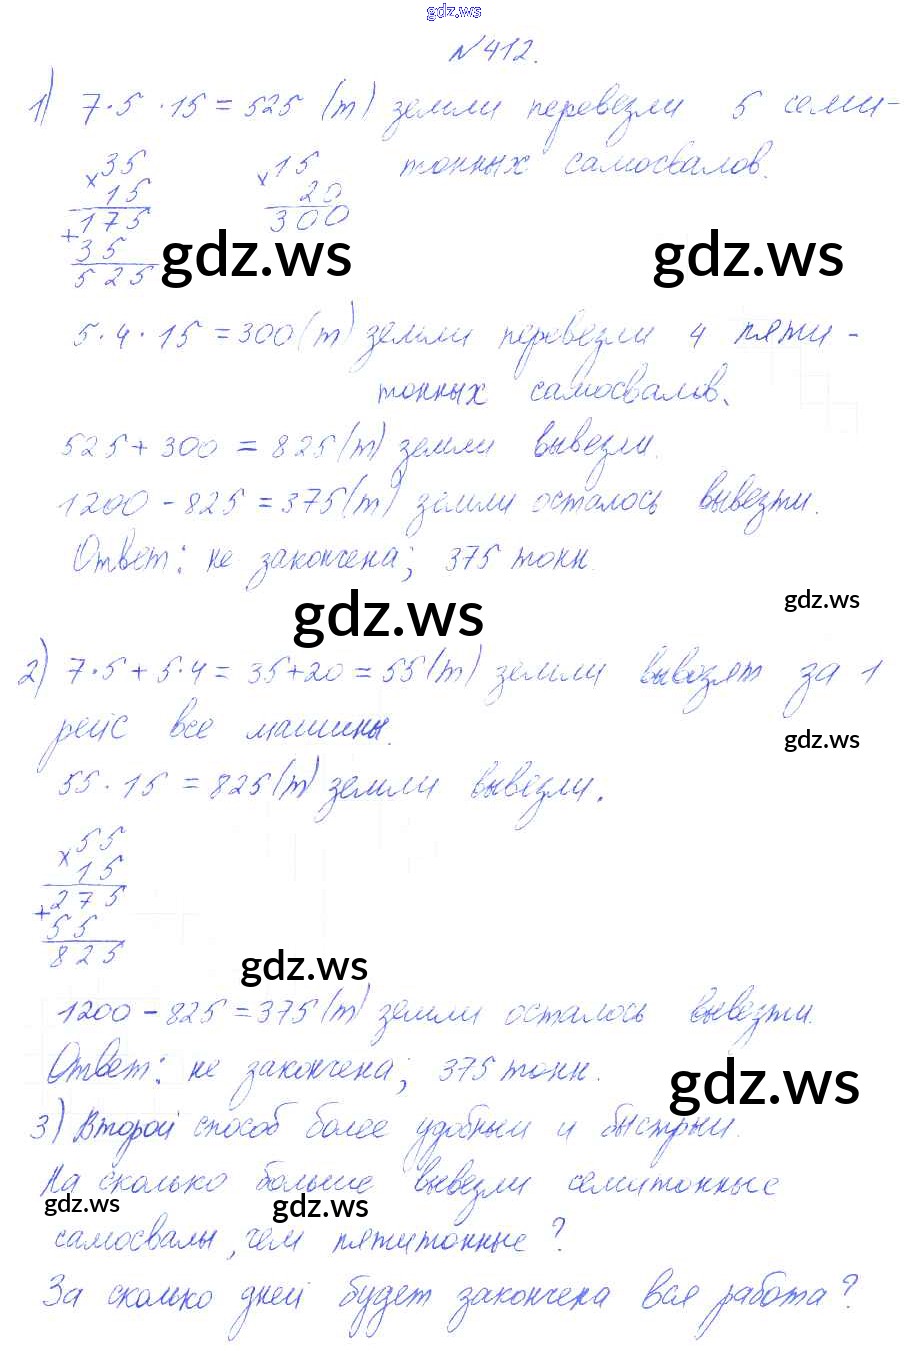 gdz.ws
№412.
1) 7·5·15 = 525 (т) земли перевезли 5 семи-
тонных самосвалов.
×35
15
+175
35
525
×15
20
300
gdz.ws gdz.ws
5·4·15 = 300 (т) земли перевезли 4 пяти-
тонных самосвалов.
525 + 300 = 825 (т) земли вывезли.
1200 - 825 = 375 (т) земли осталось вывезти.
Ответ: не закончена; 375 тонн.
gdz.ws gdz.ws
2) 7·5 + 5·4 = 35+20 = 55 (т) земли вывозят за 1
рейс все машины.
gdz.ws
55·15 = 825 (т) земли вывезли.
×55
15
+275
55
825
gdz.ws
1200 - 825 = 375 (т) земли осталось вывезти.
Ответ: не закончена; 375 тонн.
gdz.ws
3) Второй способ более удобный и быстрый.
На сколько больше вывезли семитонные
gdz.ws gdz.ws
самосвалы, чем пятитонные?
За сколько дней будет закончена вся работа?